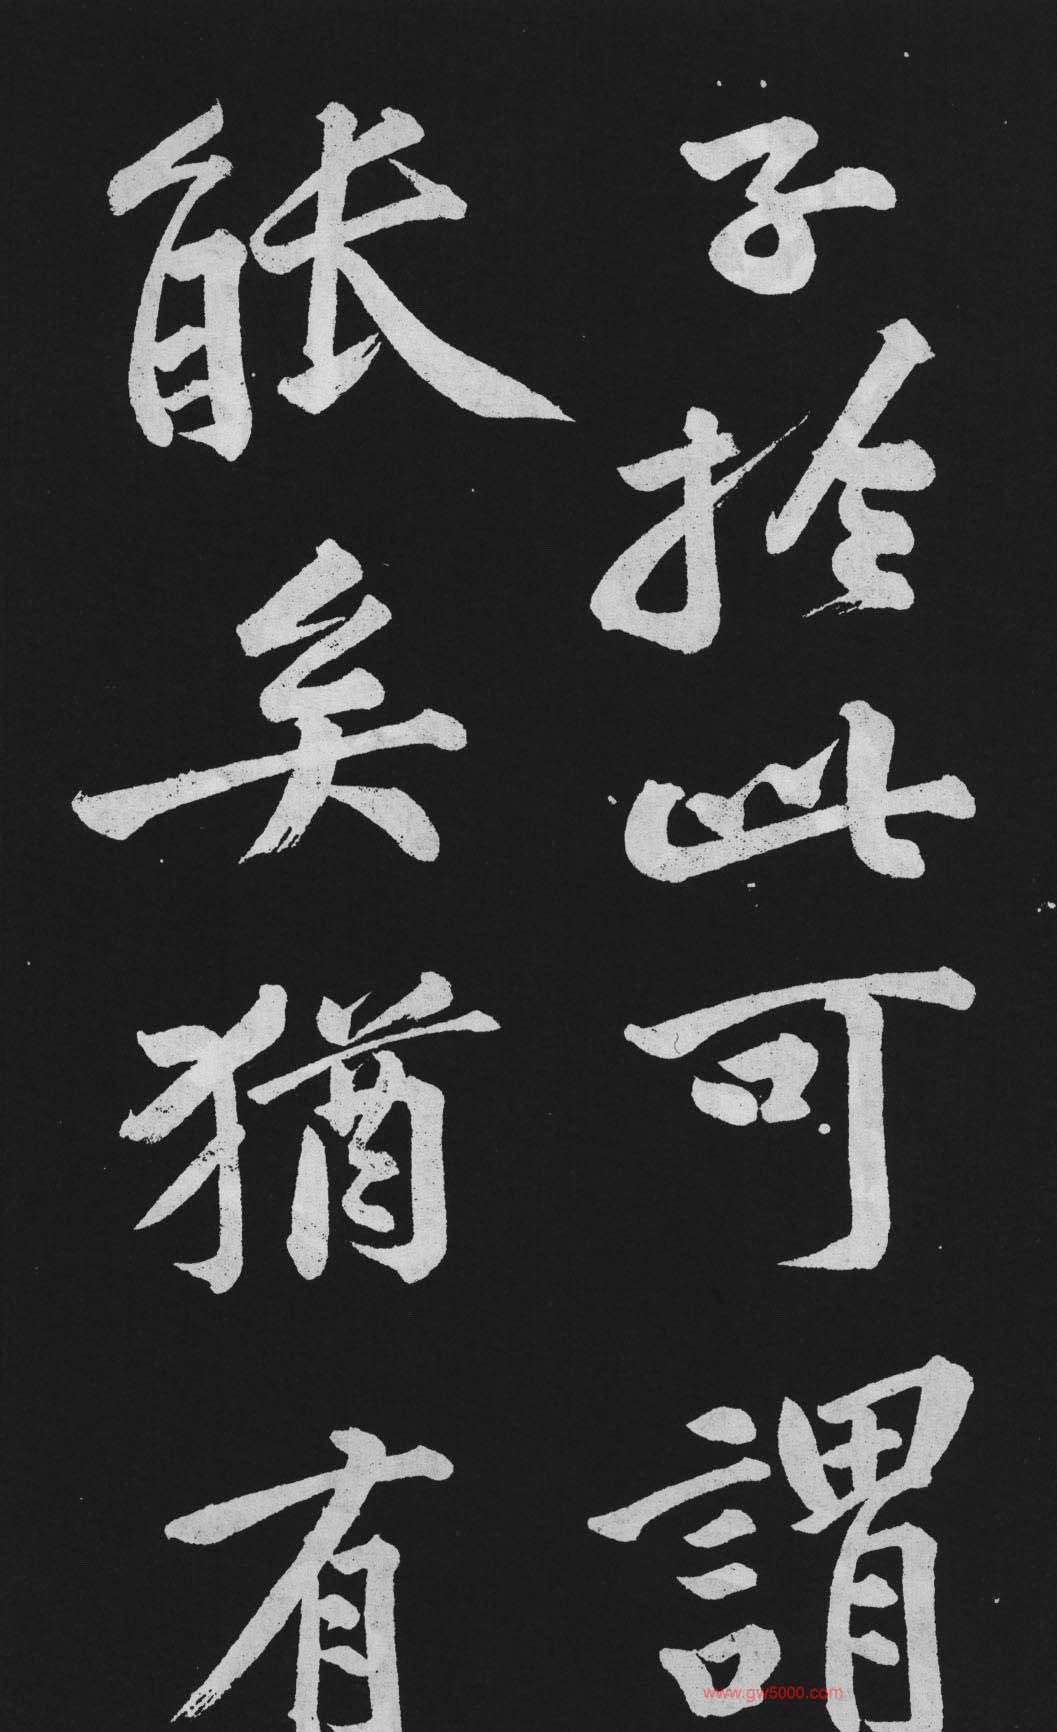 子於此可謂
能矣猶有
www.gw5000.com